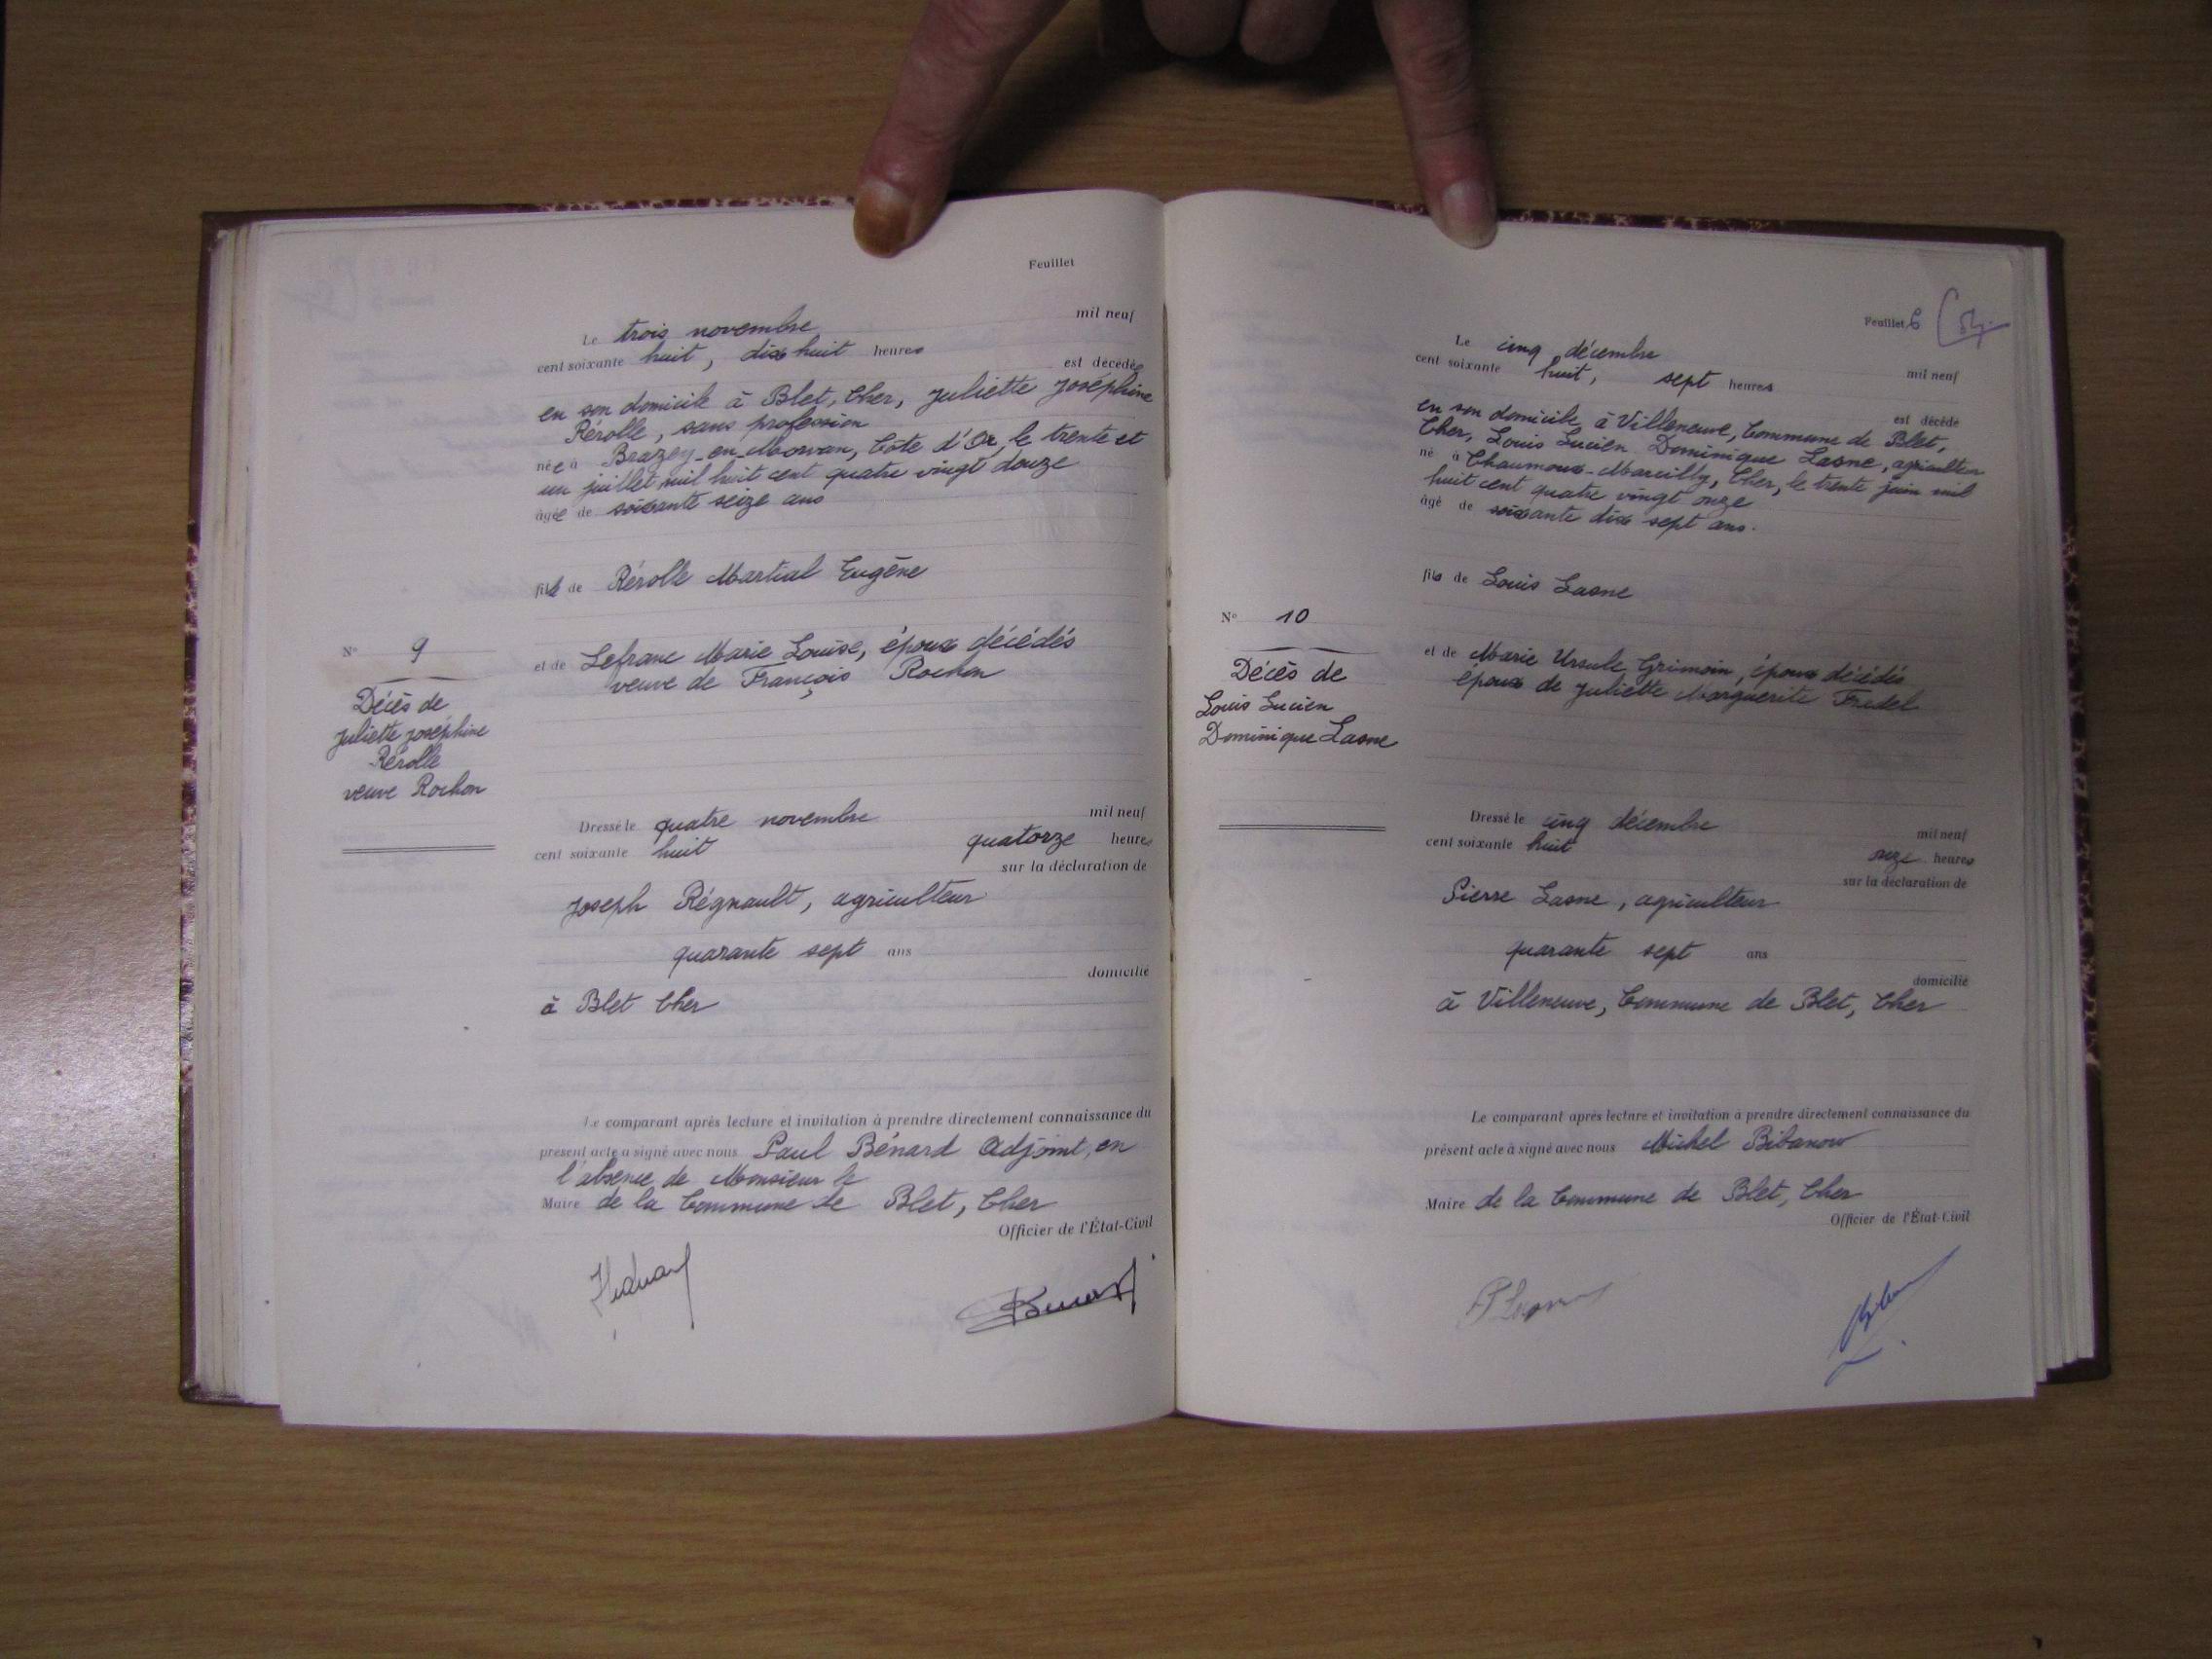 Feuillet
Le trois novembre mil neuf
cent soixante huit, dix huit heures est décédée
en son domicile à Blet, Cher, Juliette Joséphine
Rérolle, sans profession
née à Brazey-en-Morvan, Côte d'Or, le trente et
un juillet mil huit cent quatre vingt douze
âgée de soixante seize ans
fille de Rérolle Martial Eugène
et de Lefranc Marie Louise, époux décédés
veuve de François Rochon
N° 9
Décès de
Juliette Joséphine
Rérolle
veuve Rochon
Dressé le quatre novembre mil neuf
cent soixante huit quatorze heures
sur la déclaration de
Joseph Régnault, agriculteur
quarante sept ans
domicilié
à Blet Cher
Le comparant après lecture et invitation à prendre directement connaissance du
présent acte a signé avec nous Paul Bénard Adjoint, en
l'absence de Monsieur le
Maire de la Commune de Blet, Cher
Officier de l'État-Civil
Feuillet 6
Le cinq décembre mil neuf
cent soixante huit, sept heures est décédé
en son domicile, à Villeneuve, Commune de Blet,
Cher, Louis Lucien Dominique Lasne, agriculteur
né à Chaumoux-Marcilly, Cher, le trente juin mil
huit cent quatre vingt onze
âgé de soixante dix sept ans.
fils de Louis Lasne
et de Marie Ursule Grimoin, époux décédés
époux de Juliette Marguerite Fredel
N° 10
Décès de
Louis Lucien
Dominique Lasne
Dressé le cinq décembre mil neuf
cent soixante huit onze heures
sur la déclaration de
Pierre Lasne, agriculteur
quarante sept ans
domicilié
à Villeneuve, Commune de Blet, Cher
Le comparant après lecture et invitation à prendre directement connaissance du
présent acte à signé avec nous Michel Bibanow
Maire de la Commune de Blet, Cher
Officier de l'État-Civil